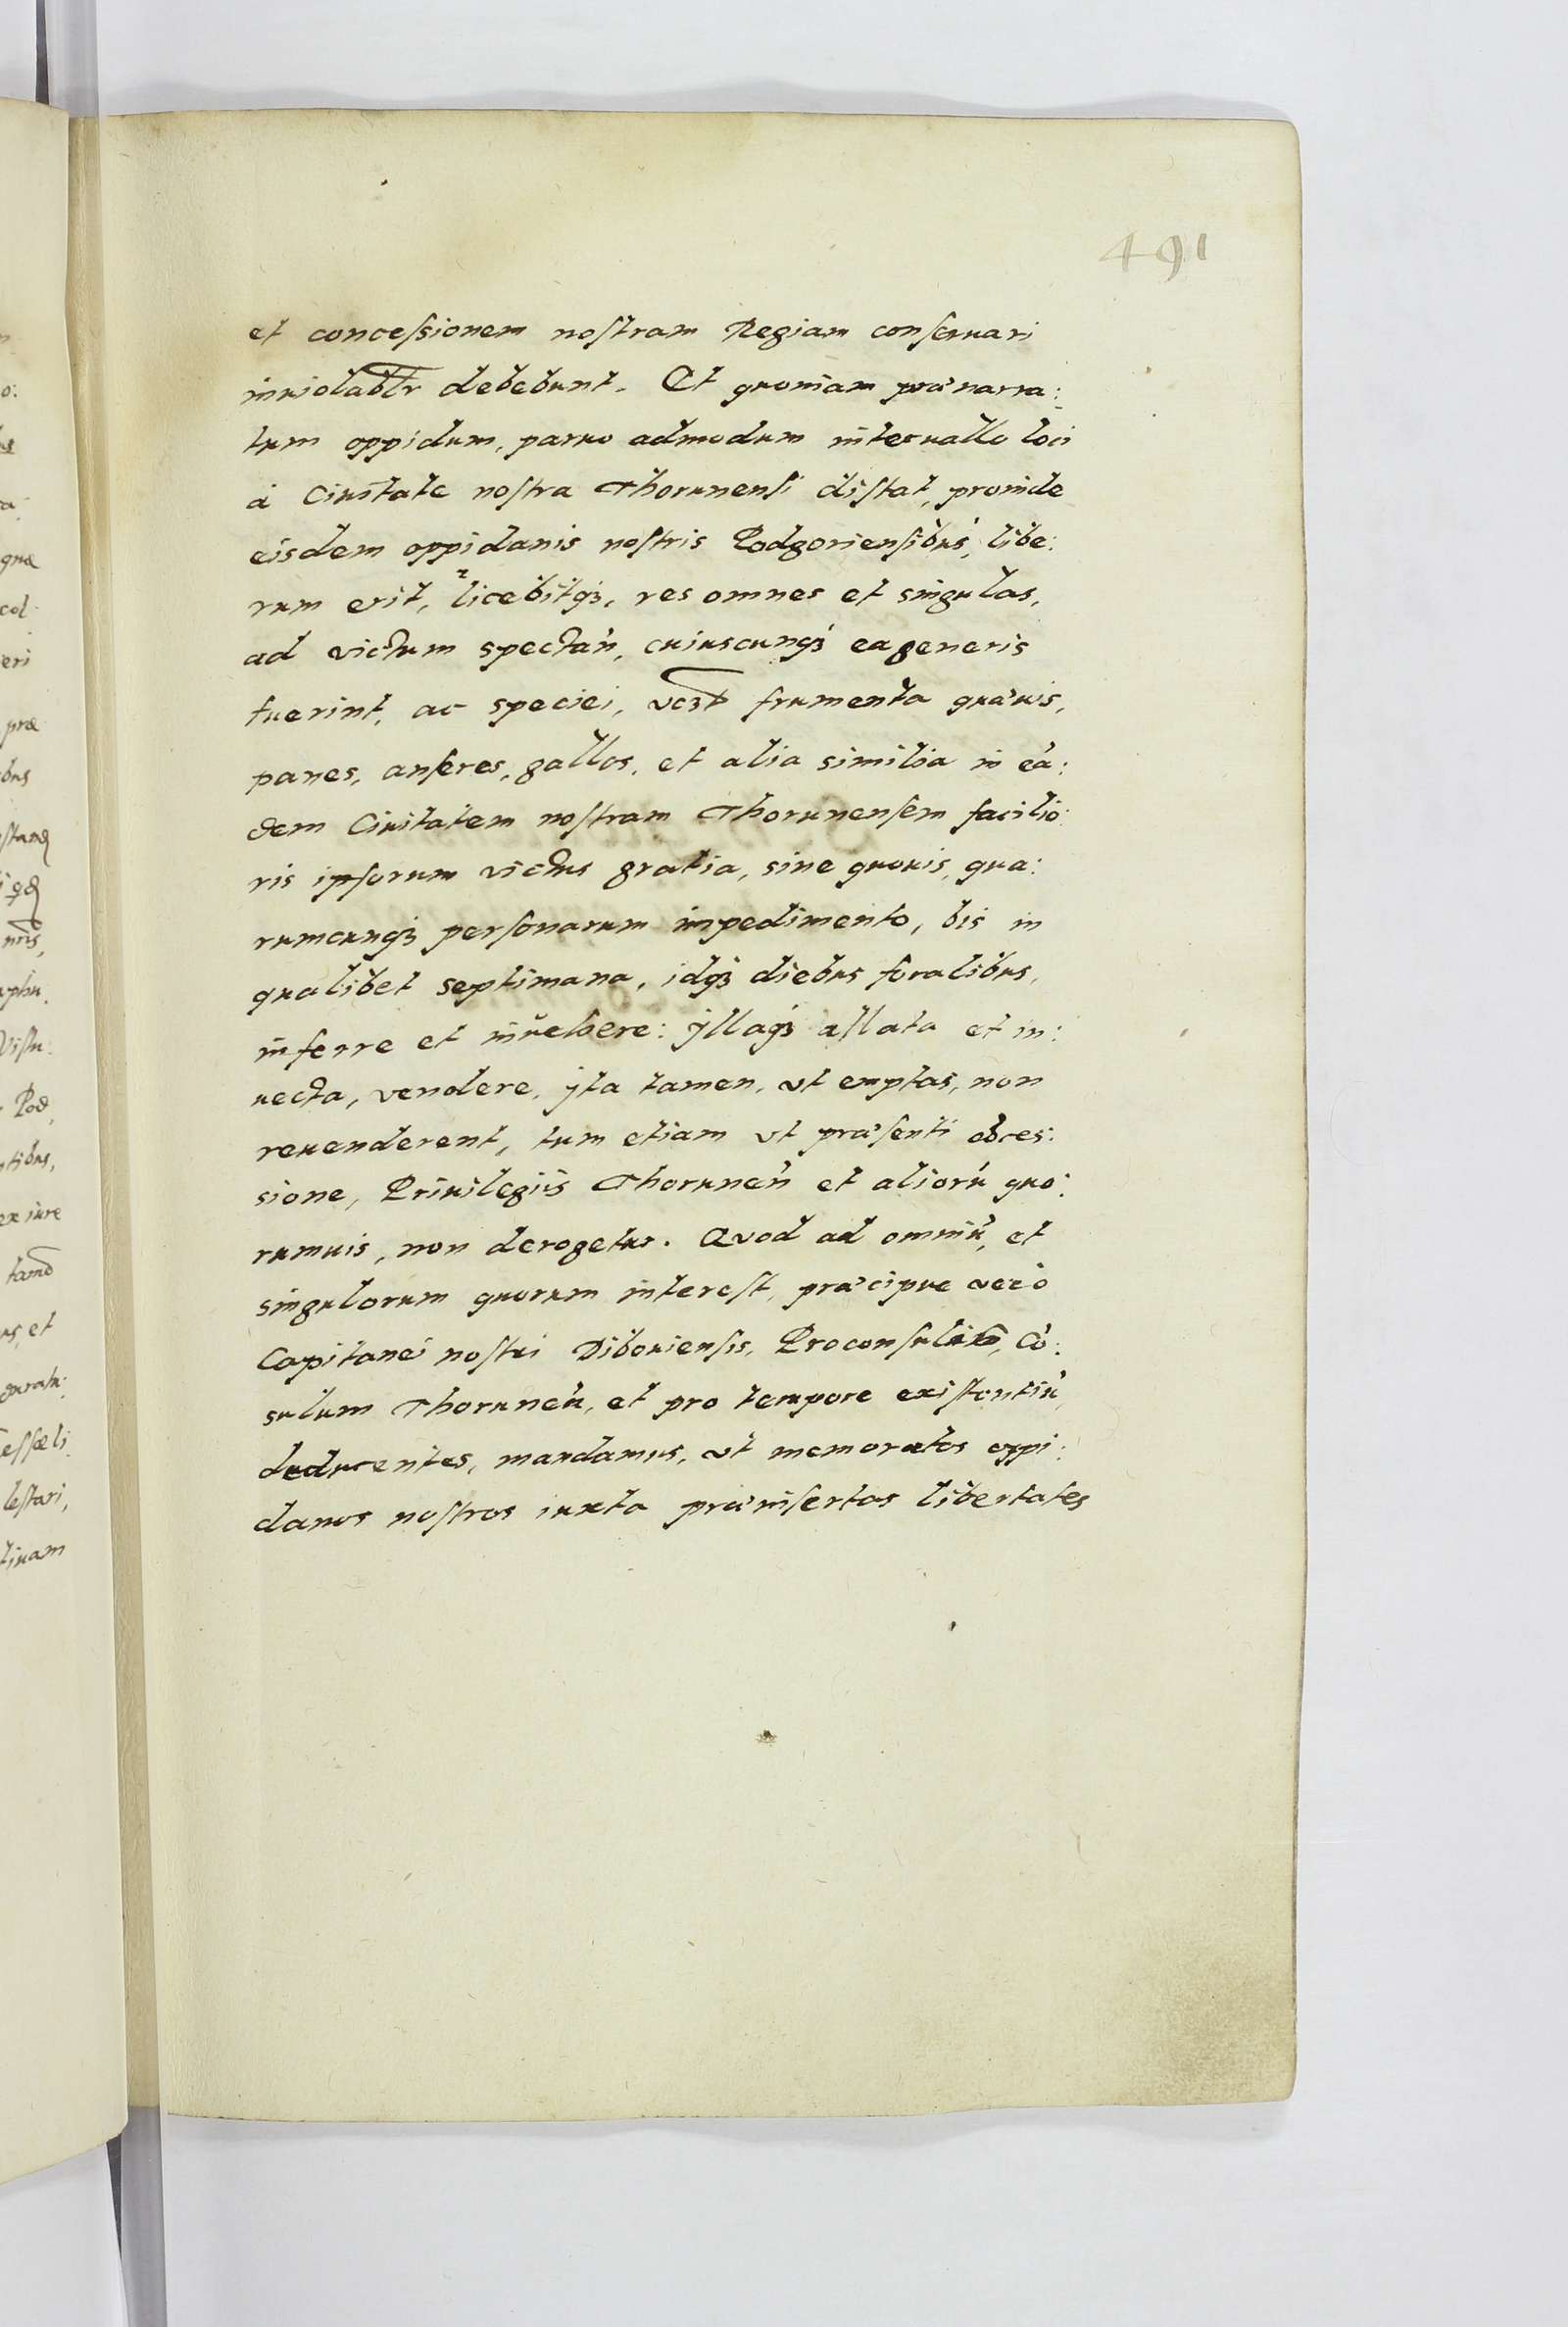 491
et conceſsionem noſtram Regiam conſeruari
inuiolabłr debebunt. Et quoniam prænarra:
tum oppidum, paruo admodum interuallo loci
à Ciuitate noſtra Thorunenſi diſtat, proinde
eisdem oppidanis noſtris Podgorienſibus, libe:
rum erit, licebitq3, res omnes et singulas,
ad victum spectan̄, cuiuscunq3 ea generis
fuerint, ac speciei, vcz̃t frumenta quæuis,
panes, anſeres, gallos, et alia similia in eā:
dem Ciuitatem noſtram Thorunenſem facilio:
ris ipſorum victus gratia, sine quouis, qua:
rumcunq3 perſonarum impedimento, bis in
qualibet septimana, idq3 diebus foralibus,
inferre et inuehere: yllaq3 allata et in:
uecta, vendere, yta tamen, vt emptas, non
reuenderent, tum etiam vt præſenti cōces:
sione, Priuilegiis Thorunen̄ et aliorū quo:
rumuis, non derogetur. Quod ad omniū, et
singulorum quorum intereſt, præcipue verò
Capitanei noſtri Dibouienſis, Proconſulum, Cō:
sulum Thorunen̄, et pro tempore exiſtentiū,
deducentes, mandamus, vt memoratos oppi:
danos noſtros iuxta præinſertas libertates